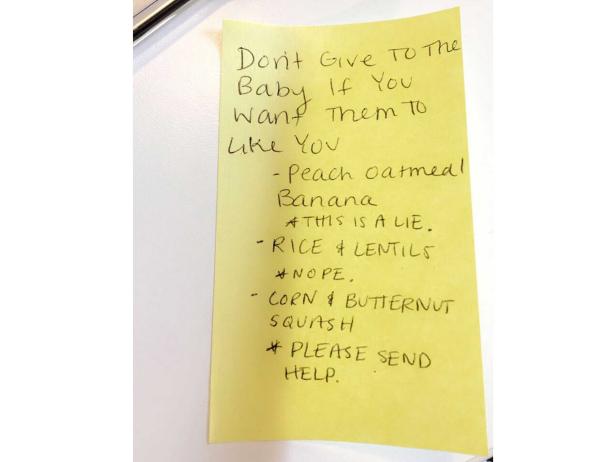 Don't Give To The
Baby If You
Want Them To
Like You
- Peach oatmeal
Banana
* THIS IS A LIE.
- RICE & LENTILS
* NOPE.
- CORN & BUTTERNUT
SQUASH
* PLEASE SEND
HELP.